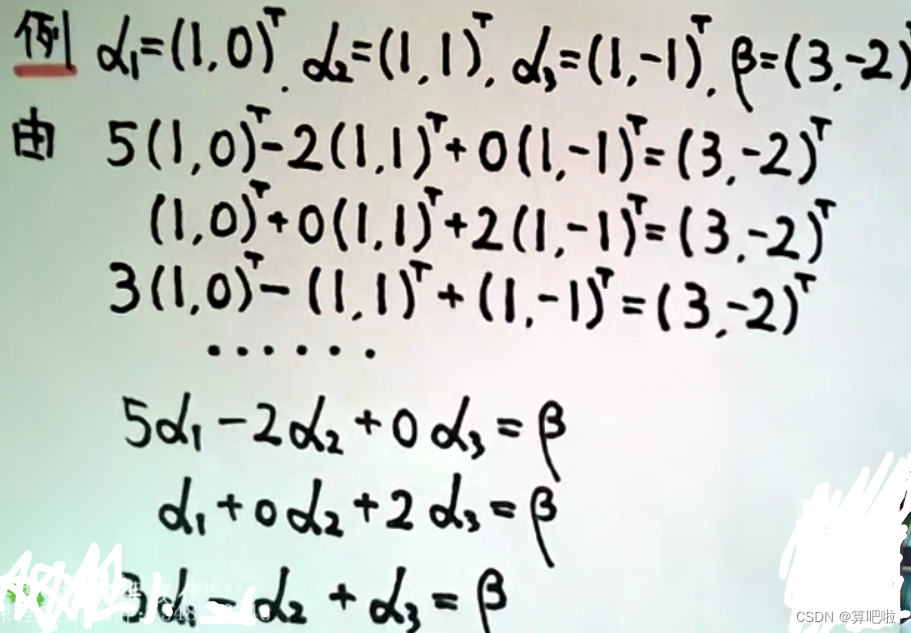 例 α₁=(1,0)ᵀ. α₂=(1,1)ᵀ, α₃=(1,-1)ᵀ, β=(3,-2)
由 5(1,0)ᵀ-2(1,1)ᵀ+0(1,-1)ᵀ=(3,-2)ᵀ
(1,0)ᵀ+0(1,1)ᵀ+2(1,-1)ᵀ=(3,-2)ᵀ
3(1,0)ᵀ-(1,1)ᵀ+(1,-1)ᵀ=(3,-2)ᵀ
······
5α₁-2α₂+0α₃=β
α₁+0α₂+2α₃=β
3α₁-α₂+α₃=β
CSDN @算吧啦